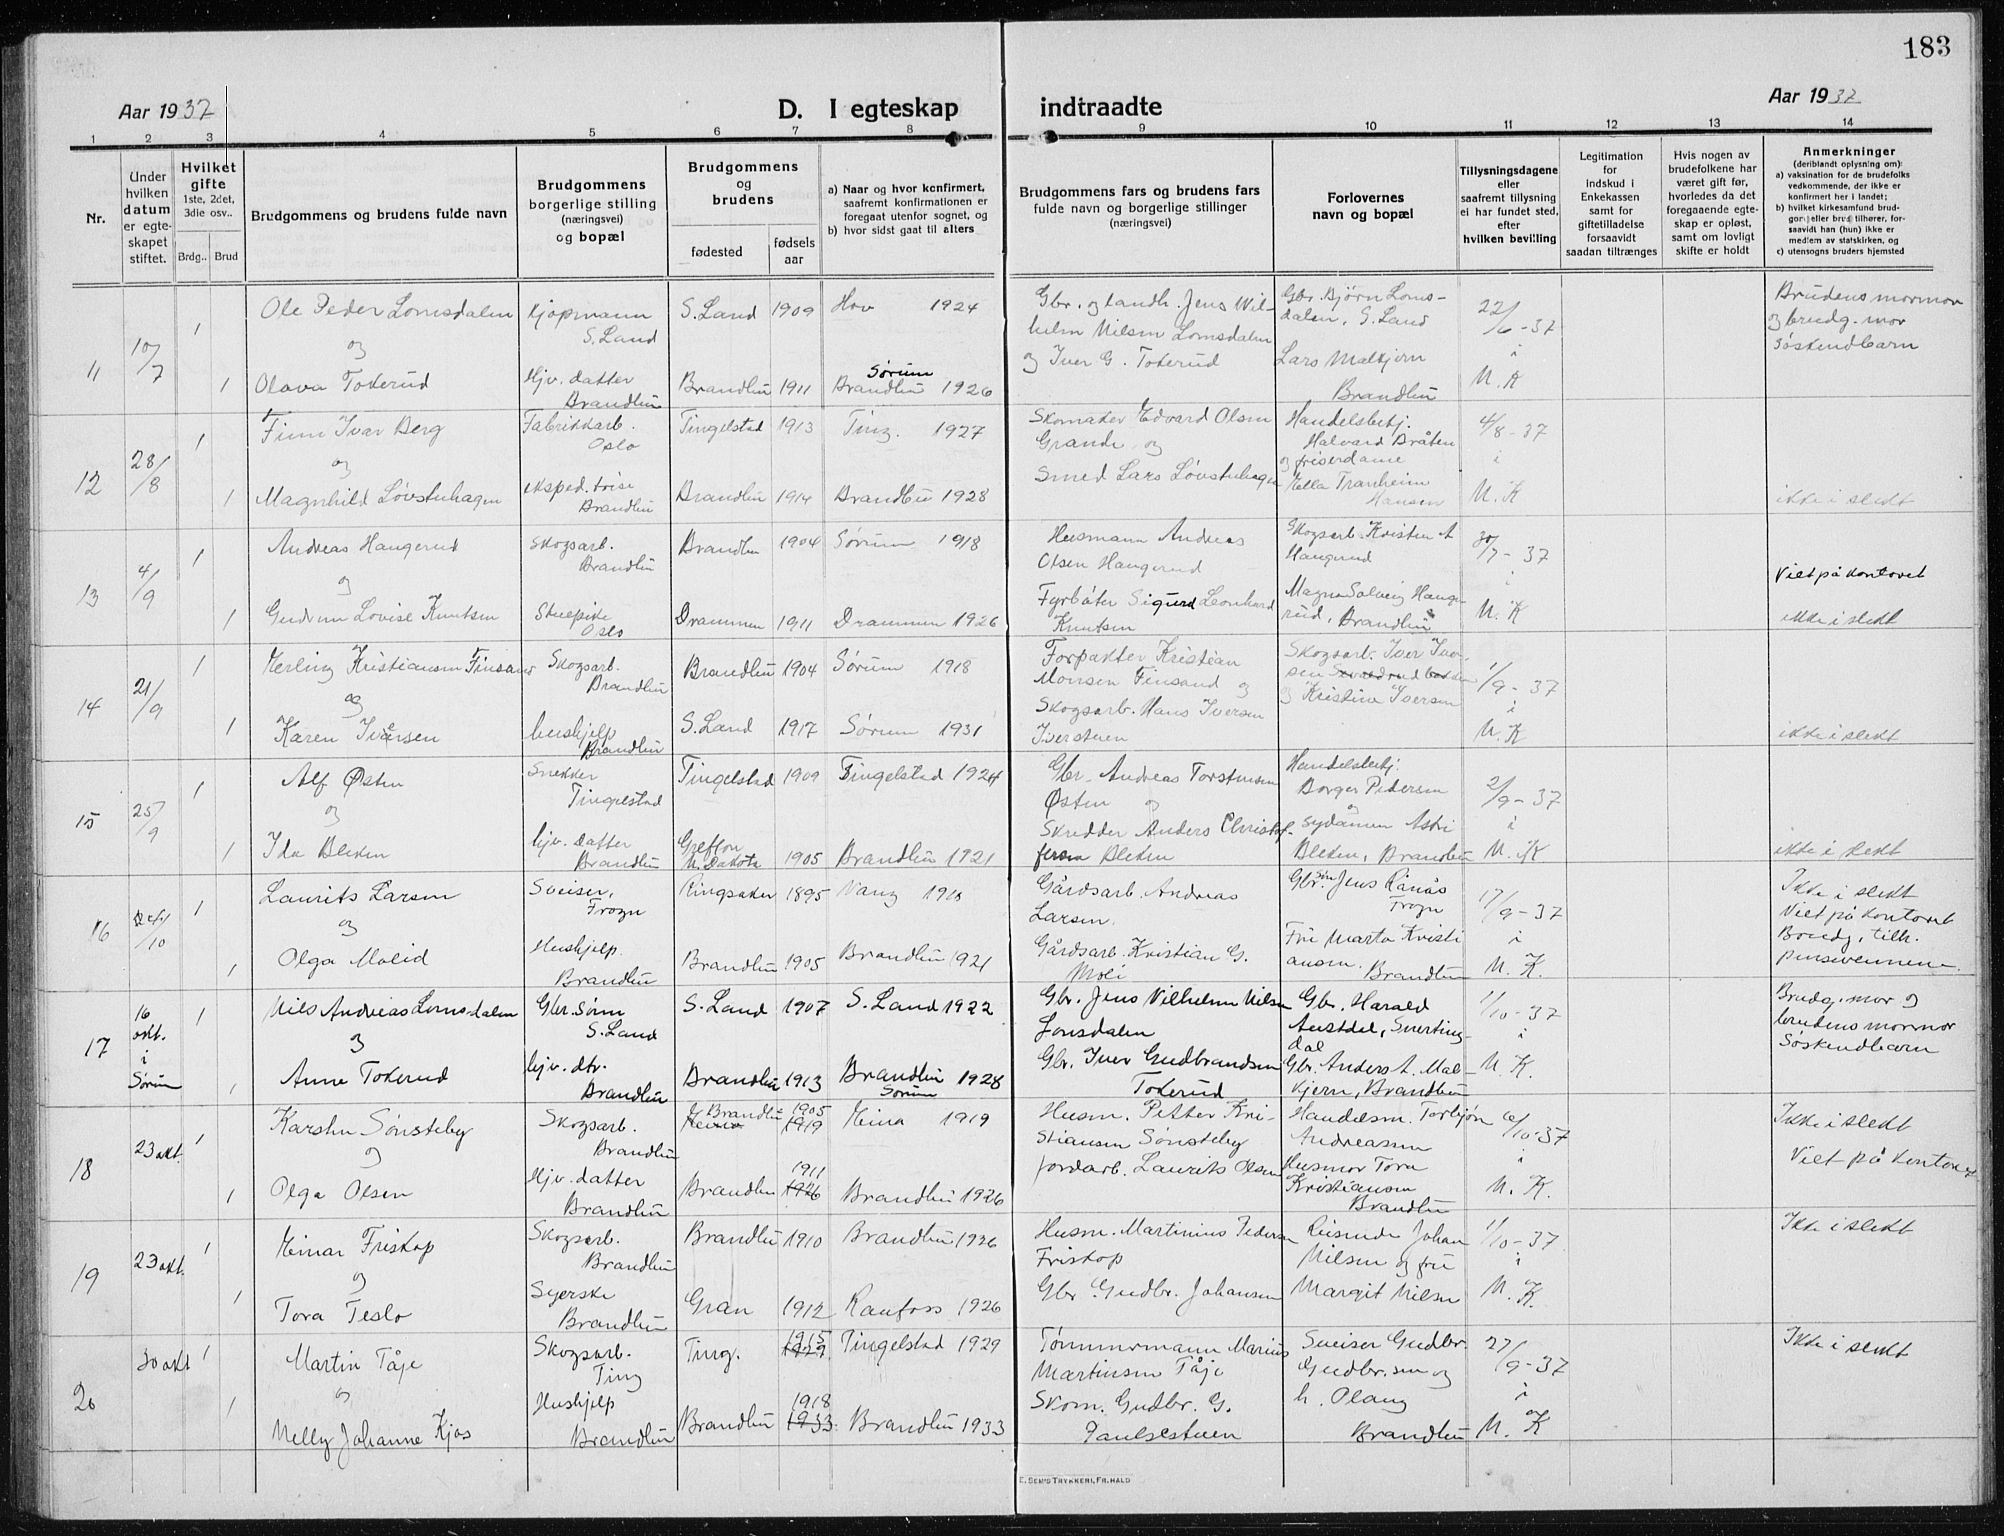 183
Aar 1937
D. I egteskap
indtraadte
Aar 1937
1 2 3 4 5 6 7 8 9 10 11 12 13 14
Nr.
Under hvilken datum er egteskapet stiftet.
Hvilket gifte
1ste, 2det, 3die osv..
Brdg.. Brud
Brudgommens og brudens fulde navn
Brudgommens borgerlige stilling (næringsvei) og bopæl
Brudgommens og brudens
fødested
fødsels aar
a) Naar og hvor konfirmert, saafremt konfirmationen er foregaat utenfor sognet, og
b) hvor sidst gaat til alters
Brudgommens fars og brudens fars fulde navn og borgerlige stillinger (næringsvei)
Forlovernes navn og bopæl
Tillysningsdagene eller saafremt tillysning ei har fundet sted, efter hvilken bevilling
Legitimation for indskud i Enkekassen samt for giftetilladelse forsaavidt saadan tiltrænges
Hvis nogen av brudefolkene har været gift før, hvorledes da det foregaaende egteskap er opløst, samt om lovligt skifte er holdt
Anmerkninger
(deriblandt oplysning om):
a) vaksination for de brudefolks vedkommende, der ikke er konfirmert her i landet;
b) hvilket kirkesamfund brudgom eller brud tilhører, forsaavidt han (hun) ikke er medlem av statskirken, og
c) utensogns bruders hjemsted
11 10/7 1 Ole Peder Lomsdalen Kjøpmann S. Land S. Land 1909 Hov 1924
og
1 Olava Tokerud Hjv. datter Brandbu Brandbu 1911 Sørum Brandbu 1926
Gbr. og landh. Jens Wilhelm Nilsen Lomsdalen
og Iver G. Tokerud
Gbr. Bjørn Lomsdalen, S. Land
Lars Malkjern Brandbu
22/6-37 i U.K
Brudens mormor
og brudg. mor
søskendbarn
12 28/8 1 Finn Ivar Berg Fabrikkarb. Oslo Tingelstad 1913 Ting. 1927
og
1 Magnhild Løvstuhagen ekspeditrise Brandbu Brandbu 1914 Brandbu 1928
Skomaker Edvard Olsen
Grande og
Smed Lars Løvstuhagen
Handelsbetj. Halvard Bråten
og friserdame
Hella Tranheim Hansen
4/8-37 i U.K
ikke i slekt
13 4/9 1 Andreas Haugerud Skogsarb. Brandbu Brandbu 1904 Sørum 1918
og
1 Gudrun Lovise Knutsen Stuepike Oslo Drammen 1911 Drammen 1926
Husmann Andreas
Olsen Haugerud
Fyrbøter Sigurd Leonhard
Knutsen
Skogsarb. Kristen A
Haugerud
Magna Solveig Haugerud, Brandbu
30/7-37 i U.K
Viet på kontoret
ikke i slekt
14 21/9 1 Herling Kristiansen Finsand Skogsarb. Brandbu Brandbu 1904 Sørum 1918
og
1 Karen Iversen hushjelp Brandbu S. Land 1917 Sørum 1931
Forpakter Kristian
Monsen Finsand og
Skogsarb. Hans Iversen
Iverstuen
Skogsarb. Iver Iversen
og Kristine Iversen
1/9-37 i U.K
ikke i slekt
15 25/9 1 Alf Østen Snekker Tingelstad Tingelstad 1909 Tingelstad 1924
og
1 Ida Bleken hjv. datter Brandbu Grefton N. Dakota 1905 Brandbu 1921
Gbr. Andreas Torstensen
Østen og
Skredder Anders Christoffersen Bleken
Handelsbetj.
Borger Pedersen
og
sydamen Astri
Bleken, Brandbu
2/9-37 i U.K
ikke i slekt
16 24/10 1 Laurits Larsen Sveiser, Frogn Ringsaker 1895 Vang 1910
og
1 Olga Moleid Hushjelp Brandbu Brandbu 1905 Brandbu 1921
Gårdsarb. Andreas
Larsen.
Gårdsarb. Kristian G.
Molei
Gbr. søn Jens Rånås
Frogn
Fru Marta Kristiansen. Brandbu
17/9-37 i U.K.
Ikke i slekt
Viet på kontoret
Brudg. tilh.
pinsevennene
17 16 okt. i Sørum 1 Nils Andreas Lomsdalen Gbr. Sønn S. Land S. Land 1907 S. Land 1922
og
1 Anne Tokerud hjv. dtr. Brandbu Brandbu 1913 Brandbu Sørum 1928
Gbr. Jens Vilhelm Nilsen
Lomsdalen
Gbr. Iver Gudbrandsen
Tokerud
Gbr. Harald
Austdal, Snertingdal
Gbr. Anders A. Malkjern, Brandbu
1/10-37 i U.K.
Brudg. mor og
brudens mormor
Søskendbarn
18 23 okt. 1 Karsten Sønsteby Skogsarb. Brandbu Brandbu Heina 1905 1919 Heina 1919
og
1 Olga Olsen Hjv. datter Brandbu Brandbu 1911 1926 Brandbu 1926
Husm. Petter Kristiansen Sønsteby
Jordarb. Laurits Olsen
Handelsm. Torbjørn
Andreassen
Husmor Tora
Kristiansen
Brandbu
6/10-37 i U.K.
Ikke i slekt
Viet på kontoret
19 23 okt. 1 Heinar Friskop Skogsarb. Brandbu Brandbu 1910 Brandbu 1926
og
1 Tora Teslo Syerske Brandbu Gran 1912 Raufoss 1926
Husm. Martinius Pedersen
Friskop
Gbr Gudbr. Johansen
Reisende Johan
Nilsen og fru
Margit Nilsen
1/10-37. i U.K.
Ikke i slekt
20 30 okt 1 Martin Tåje Skogsarb. Ting Ting. 1915 1929 Tingelstad 1929
og
1 Nelly Johanne Kjos Hushjelp Brandbu Brandbu 1918 1933 Brandbu 1933
Tømmermann Marius
Martinsen Tåje
Skom. Gudbr. G.
Paulsestuen
Sveiser Gudbr.
Gudbr.sen og
h. Olaug
Brandbu
27/9-37 i U.K
Ikke i slekt
E. SEM'S TRYKKERI, FR.HALD